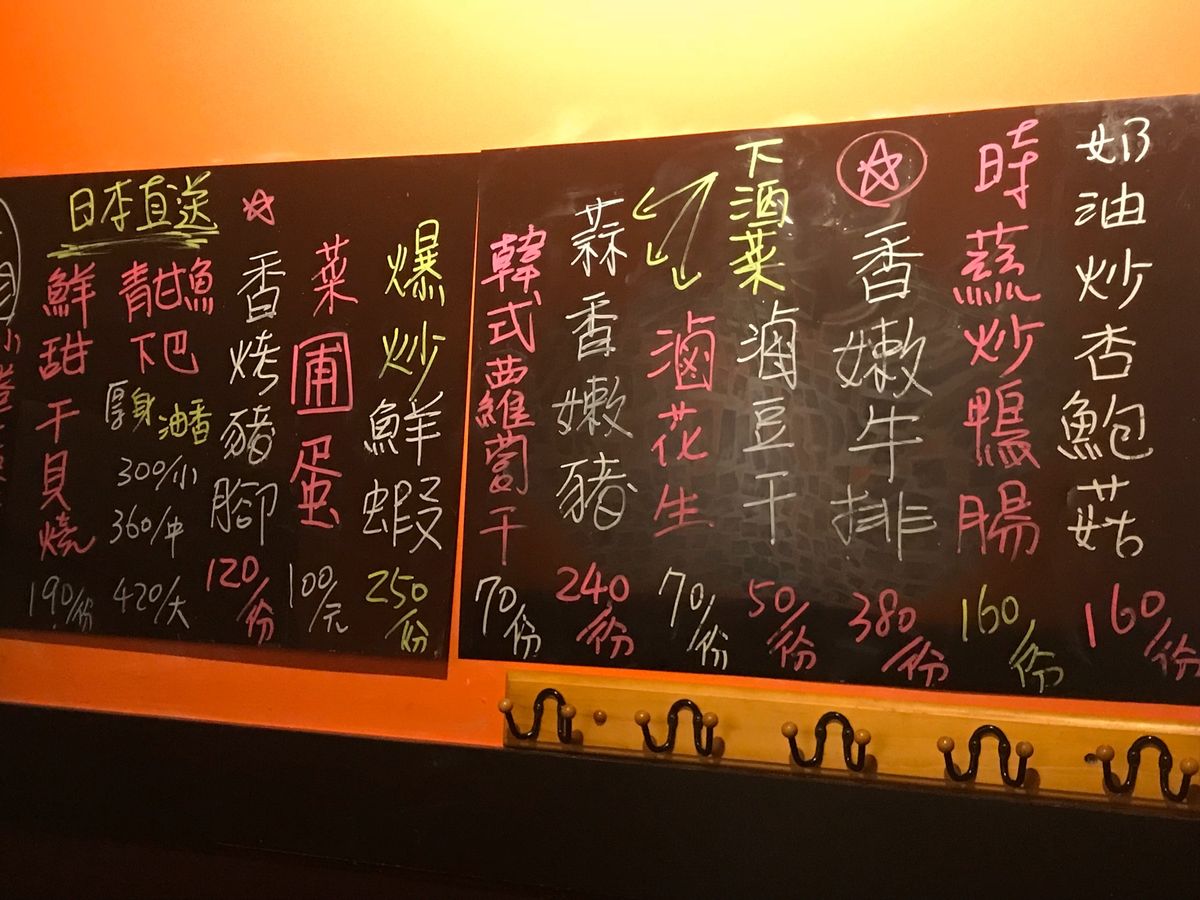 奶油炒杏鮑菇
160/份
時蔬炒鴨腸
160/份
香嫩牛排
380/份
下酒菜
滷豆干
50/份
滷花生
70/份
蒜香嫩豬
240/份
韓式蘿蔔干
70/份
爆炒鮮蝦
250/份
菜圃蛋
100/元
香烤豬腳
120/份
日本直送
青甘魚
下巴
厚身 油香
300/小
360/中
420/大
鮮甜干貝燒
190/份